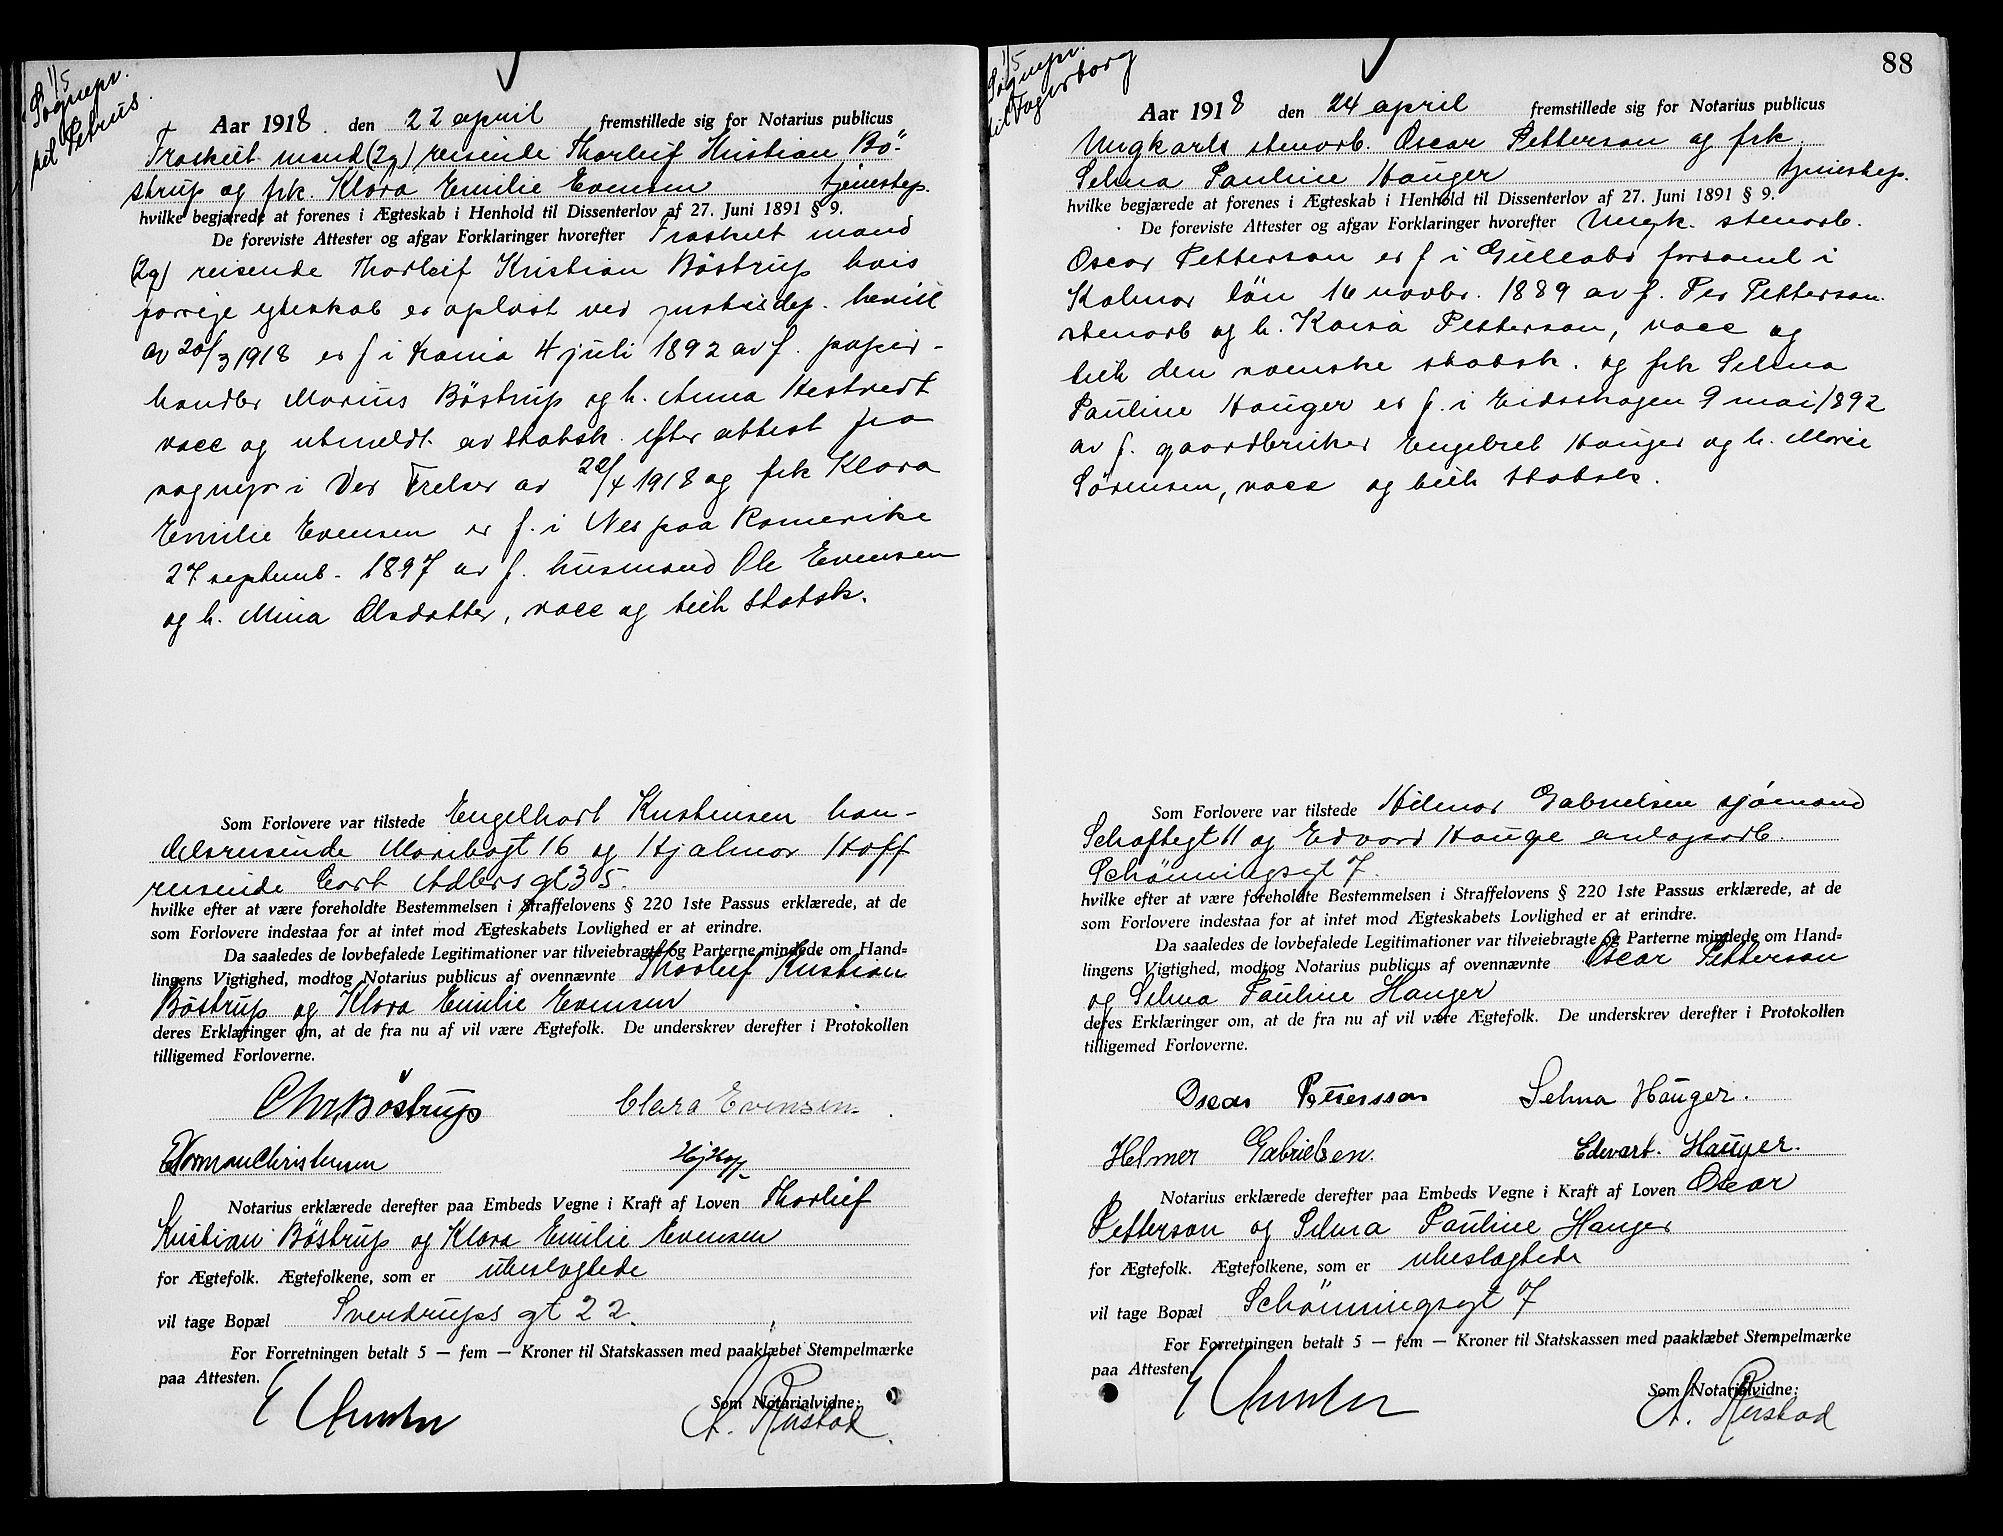 1/5
Sognepr.
til Petrus.
Aar 1918. den 22 april fremstillede sig for Notarius publicus
Fraskilt mand (2g) reisende Thorleif Kristian Bö-
strup og frk. Klara Emilie Evensen tjenestep.
hvilke begjærede at forenes i Ægteskab i Henhold til Dissenterlov af 27. Juni 1891 § 9.
De foreviste Attester og afgav Forklaringer hvorefter Fraskilt mand
(2g) reisende Thorleif Kristian Böstrup hvis
forrige egteskab er opløst ved justisdep. bevill
av 20/3 1918 er f i Kania 4 juli 1892 av f. papir-
handler Marius Böstrup og h. Anna Kestvedt
vacc og utmeldt av statsk. efter attest fra
sognepr i Vor Frelser av 22/4 1918 og frk Klara
Emilie Evensen er f. i Nes paa Romerike
27 septemb. 1897 av f. husmand Ole Evensen
og h. Mina Olsdatter, vacc og tilh statsk.
Som Forlovere var tilstede Engelhart Kristensen han-
delsreisende Maribogt 16 og Hjalmar Hoff
reisende Cort Adlers gt 35.
hvilke efter at være foreholdte Bestemmelsen i Straffelovens § 220 1ste Passus erklærede, at de
som Forlovere indestaa for at intet mod Ægteskabets Lovlighed er at erindre.
Da saaledes de lovbefalede Legitimationer var tilveiebragte og Parterne mindede om Hand-
lingens Vigtighed, modtog Notarius publicus af ovennævnte Thorleif Kristian
Böstrup og Klara Emilie Evensen
deres Erklæringer om, at de fra nu af vil være Ægtefolk. De underskrev derefter i Protokollen
tilligemed Forloverne.
Chr. Böstrup Clara Evensen
Christensen Hj Hoff
Notarius erklærede derefter paa Embeds Vegne i Kraft af Loven Thorleif
Kristian Böstrup og Klara Emilie Evensen
for Ægtefolk. Ægtefolkene, som er ubeslegtede
vil tage Bopæl Sverdrups gt 22.
For Forretningen betalt 5 — fem — Kroner til Statskassen med paaklæbet Stempelmærke
paa Attesten.
Som Notarialvidne:
A. Rustad.
88
1/5
Sognepr.
til Fagerborg
Aar 1918 den 24 april fremstillede sig for Notarius publicus
Ungkarls stenarb. Oscar Petterson og frk
Selma Pauline Hauger tjenestep.
hvilke begjærede at forenes i Ægteskab i Henhold til Dissenterlov af 27. Juni 1891 § 9.
De foreviste Attester og afgav Forklaringer hvorefter Ungk. stenarb.
Oscar Petterson er f i Gullabo forsaml i
Kalmar län 16 novbr. 1889 av f. Per Petterson
stenarb og h. Kaisa Petterson, vacc og
tilh den svenske statsk. og frk Selma
Pauline Hauger er f. i Eidsskogen 9 mai 1892
av f. gaardbruker Engebret Hauger og h. Marie
Sørensen, vacc og tilh statsk.
Som Forlovere var tilstede Hilmar Gabrielsen sjømand
Schaftegt 11 og Edvard Hauge anlagsarb.
Schönningsgt 7.
hvilke efter at være foreholdte Bestemmelsen i Straffelovens § 220 1ste Passus erklærede, at de
som Forlovere indestaa for at intet mod Ægteskabets Lovlighed er at erindre.
Da saaledes de lovbefalede Legitimationer var tilveiebragte og Parterne mindede om Hand-
lingens Vigtighed, modtog Notarius publicus af ovennævnte Oscar Petterson
og Selma Pauline Hauger
deres Erklæringer om, at de fra nu af vil være Ægtefolk. De underskrev derefter i Protokollen
tilligemed Forloverne.
Oscar Pettersson Selma Hauger.
Helmer Gabrielsen. Edvart. Hauger.
Notarius erklærede derefter paa Embeds Vegne i Kraft af Loven Oscar
Petterson og Selma Pauline Hauger
for Ægtefolk. Ægtefolkene, som er ubeslegtede
vil tage Bopæl Schönningsgt 7
For Forretningen betalt 5 — fem — Kroner til Statskassen med paaklæbet Stempelmærke
paa Attesten
Som Notarialvidne:
A. Rustad